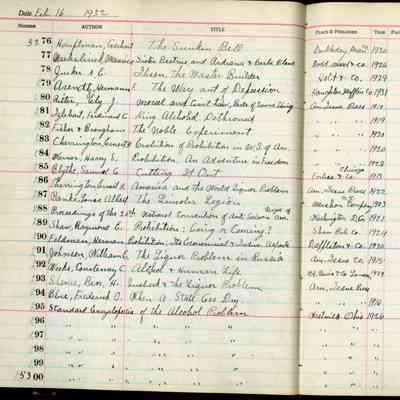 Date Feb 16 1932
NUMBER AUTHOR TITLE PLACE & PUBLISHER YEAR
32 76 Hauptman, Gerhart The Sunken Bell Doubleday 1930
77 Maeterlinck, Maurice Sister Beatrice and Ardiane & Barbe Bleue Dodd 1920
78 Ibsen, the Master Builder Holt & Co. 1929
79 Hermann F. The Way out of Depression Houghton Mifflin Co. 1931
80 Moral and Court Law, Am. Issue Press 1919
81 Iglehart, Ferdinand C. King Alcohol Dethroned " " " 1919
82 Fisher & Brougham The Noble Experiment " " " 1930
83 Cherrington, Ernest H. Evolution of Prohibition in U.S. of Am. " " " 1920
84 Warner, Harry S. Prohibition, An Adventure in Freedom " " " 1928
85 Blythe, Samuel G. Cutting It Out Chicago Forbes & Co. 1913
86 Cherrington, Ernest H. America and the World Liquor Problem Am. Issue Press 1922
87 Banks, Louis Albert The Lincoln Legion 1903
88 Proceedings of the 20th National Convention of Anti Saloon League of Am. 1921
89 Shaw, Raymond C. Prohibition: Going or Coming? Shaw Pub. Co. 1924
90 Feldman, Herman Prohibition, Its Economical & Indus. Aspects D. Appleton & Co. 1930
91 Johnson, William E. The Liquor Problem in Russia Am. Issue Co. 1915
92 Weeks, Courtenay C. Alcohol & Human Life London 1929
93 Ben, H. & the Liquor Problem Am. Issue Press
94 Blue, Frederick O. When A State Goes Dry " " " 1916
95 Standard Encyclopedia of the Alcohol Problem Westerville Ohio 1926
96 " " " " " " "
97 " " " " " " "
98 " " " " " " "
99 " " " " " " "
153 00 " " " " " " "